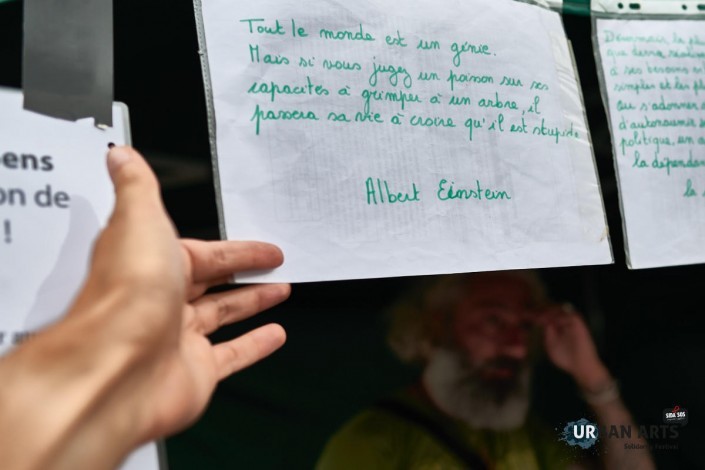 Tout le monde est un génie.
Mais si vous jugez un poisson sur ses
capacités à grimper à un arbre, il
passera sa vie à croire qu'il est stupide
Albert Einstein
Désormais la plu
que devra réalise
à ses besoins
simples et les plu
ou s'adonner
d'autonomie
politique, en a
la dépendan
ens
on de
!
SIDA SOS
URBAN ARTS